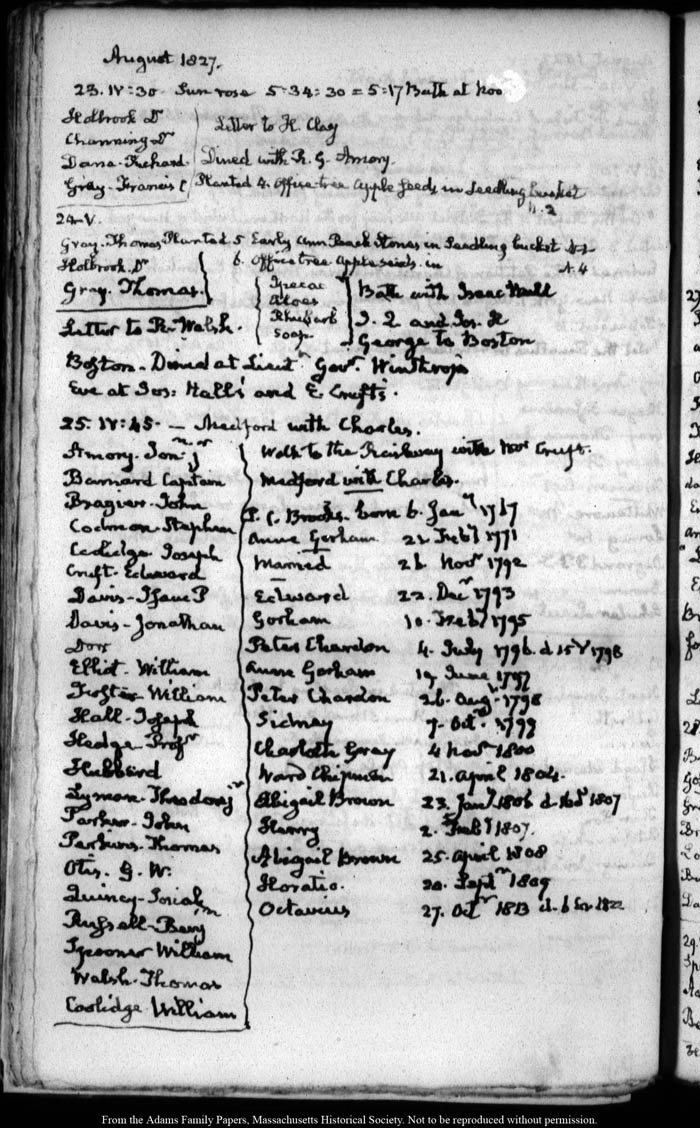 August 1827.
23. IV:30 Sun rose 5-34:30 = 5:17 Bath at Noo
Holbrook Dr
Channing Dr
Dana-Richard.
Gray-Francis C
Letter to H. Clay
Dined with R. G. Amory.
Planted 4. Office-tree Apple seeds in seedling bucket
n. 2
24-V.
Gray-Thomas Planted 5 Early Ann Peach Stones in Seedling bucket
Holbrook-Dr 6. Office tree Apple seeds in N. 4
Gray. Thomas.
Letter to R. Walsh.
Ipecac
Aloes
Rhubarb
Soap
Bath with Isaac Hull
I. 2 and Jos. H
George to Boston
Boston- Dined at Lieutt Govr. Winthrop's
Eve at Jos: Hall's and E. Cruft's.
25. IV:45. — Medford with Charles.
Amory-Jonn jr
Barnard Captain
Bragier-John
Codman-Stephen
Coolidge Joseph
Cruft-Edward
Davis-Isaac P
Davis-Jonathan
Dorr
Elliot-William
Foster William
Hall-Joseph
Hedge Profr
Hubbard
Lyman-Theodore jr
Parker-John
Perkins Thomas
Otis. G. W.
Quincy-Josiah
Russell-Benjn
Spooner William
Walsh-Thomas
Coolidge William
Walk to the Railway with Mr Cruft.
Medford with Charles.
P. C. Brooks. born 6. Jany 1767
Anne Gorham 21. Feby 1771
Married 26 Novr 1792
Edward 22. Decr 1793
Gorham 10. Feby 1795
Peter Chardon 4. July 1796. d. 15 1798
Anne Gorham 19 June 1797
Peter Chardon 26. Augt 1798
Sidney 7. Octr. 1799
Charlotte Gray 4 Novr 1800
Ward Chipman 21. April 1804.
Abigail Brown 23. Jany 1806 d. 1807
Henry 2. Feby 1807.
Abigail Brown 25. April 1808
Horatio. 20. Septr 1809
Octavius 27. Octr 1813 d. 6 1822
From the Adams Family Papers, Massachusetts Historical Society. Not to be reproduced without permission.